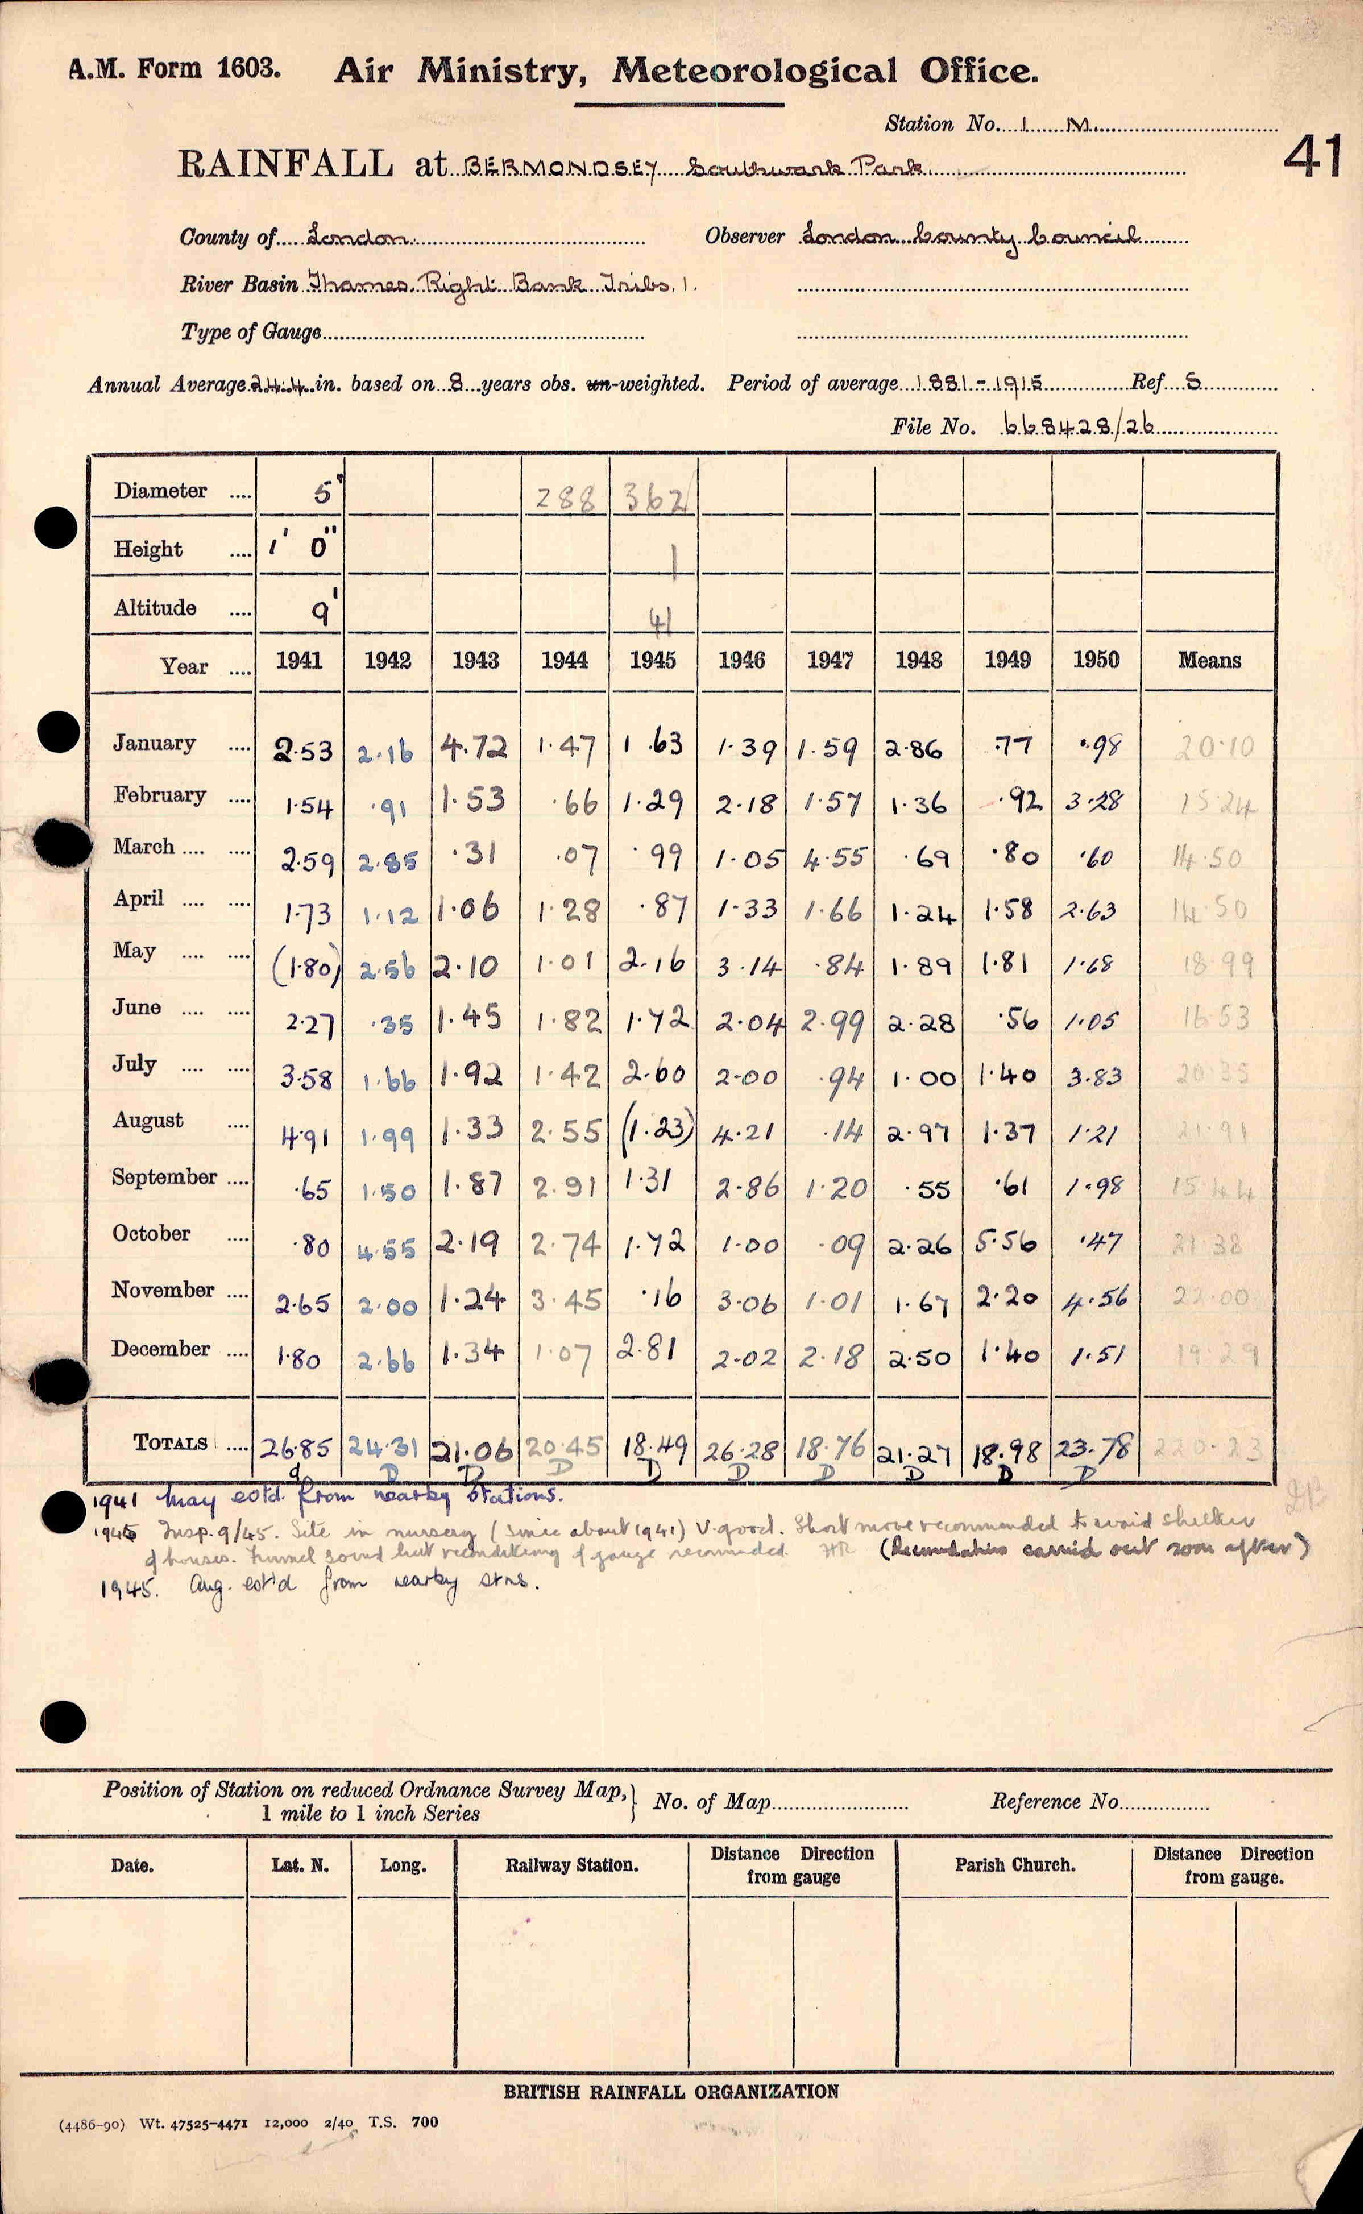 A.M. Form 1603. Air Ministry, Meteorological Office.
Station No. 1 M
41
RAINFALL at BERMONDSEY Southwark Park
County of London Observer London County Council
River Basin Thames Right Bank Tribs. 1.
Type of Gauge
Annual Average 24.4 in. based on 8 years obs. un-weighted. Period of average 1881-1915 Ref S
File No. 668428/26
Diameter .... 5" 288 362
Height .... 1' 0" 1
Altitude .... 9' 41
Year .... 1941 1942 1943 1944 1945 1946 1947 1948 1949 1950 Means
January .... 2.53 2.16 4.72 1.47 1.63 1.39 1.59 2.86 .77 .98 20.10
February .... 1.54 .91 1.53 .66 1.29 2.18 1.57 1.36 .92 3.28 15.24
March .... .... 2.59 2.85 .31 .07 .99 1.05 4.55 .69 .80 .60 14.50
April .... .... 1.73 1.12 1.06 1.28 .87 1.33 1.66 1.24 1.58 2.63 14.50
May .... .... (1.80) 2.56 2.10 1.01 2.16 3.14 .84 1.89 1.81 1.68 18.99
June .... .... 2.27 .35 1.45 1.82 1.72 2.04 2.99 2.28 .56 1.05 16.53
July .... .... 3.58 1.66 1.92 1.42 2.60 2.00 .94 1.00 1.40 3.83 20.35
August .... 4.91 1.99 1.33 2.55 (1.23) 4.21 .14 2.97 1.37 1.21 21.91
September .... .65 1.50 1.87 2.91 1.31 2.86 1.20 .55 .61 1.98 15.44
October .... .80 4.55 2.19 2.74 1.72 1.00 .09 2.26 5.56 .47 21.38
November .... 2.65 2.00 1.24 3.45 .16 3.06 1.01 1.67 2.20 4.56 22.00
December .... 1.80 2.66 1.34 1.07 2.81 2.02 2.18 2.50 1.40 1.51 19.29
TOTALS .... 26.85 24.31 21.06 20.45 18.49 26.28 18.76 21.27 18.98 23.78 220.23
d D D D D D D D D D
1941 May estd. from nearby stations.
1945 Insp. 9/45. Site in nursery (since about 1941) V. good. Short move recommended to avoid shelter
of houses. Funnel sound but reconditioning of gauge recommended. HR (Recondation carried out soon after)
1945. Aug. est'd from nearby stns.
Position of Station on reduced Ordnance Survey Map, } No. of Map Reference No.
1 mile to 1 inch Series
Date. Lat. N. Long. Railway Station. Distance Direction from gauge Parish Church. Distance Direction from gauge.
BRITISH RAINFALL ORGANIZATION
(4486-90) Wt. 47525-4471 12,000 2/40 T.S. 700